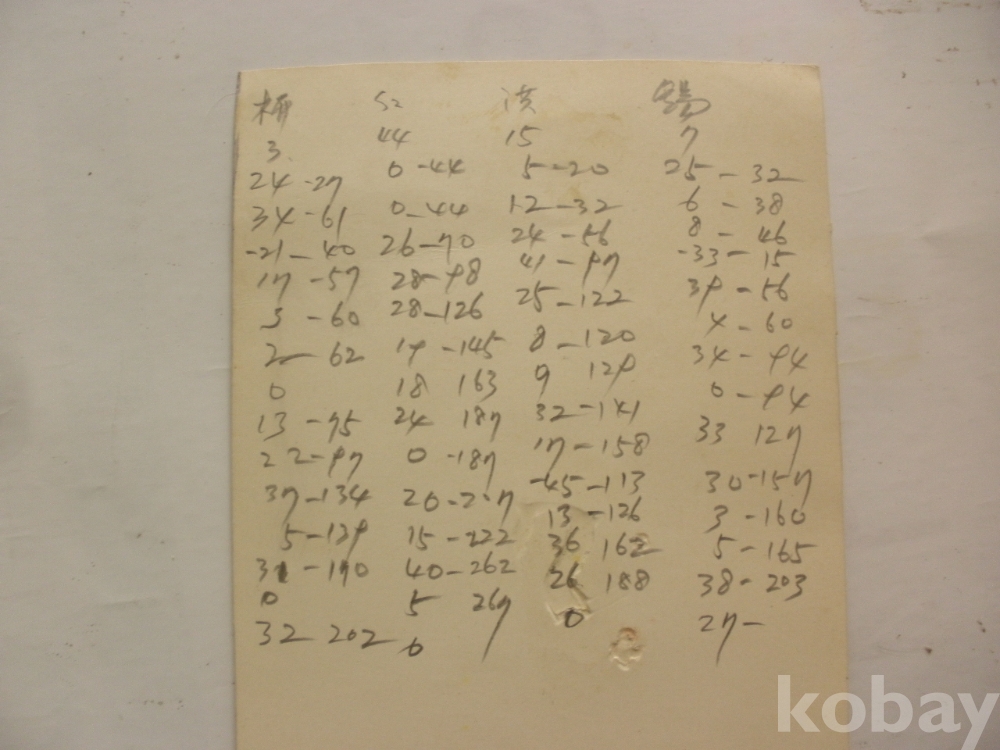 洪
3 44 15 7
24-27 0-44 5-20 25-32
34-61 0-44 12-32 6-38
-21-40 26-70 24-56 8-46
17-57 28-98 41-97 -33-15
3-60 28-126 25-122 39-56
2-62 19-145 8-120 4-60
0 18 163 9 129 34-94
13-75 24 187 32-141 0-94
22-97 0-187 17-158 33 127
37-134 20-207 -45-113 30-157
5-139 15-222 13-126 3-160
31-170 40-262 36 162 5-165
0 5 267 26 188 38-203
32 202 0 0 27-
kobay